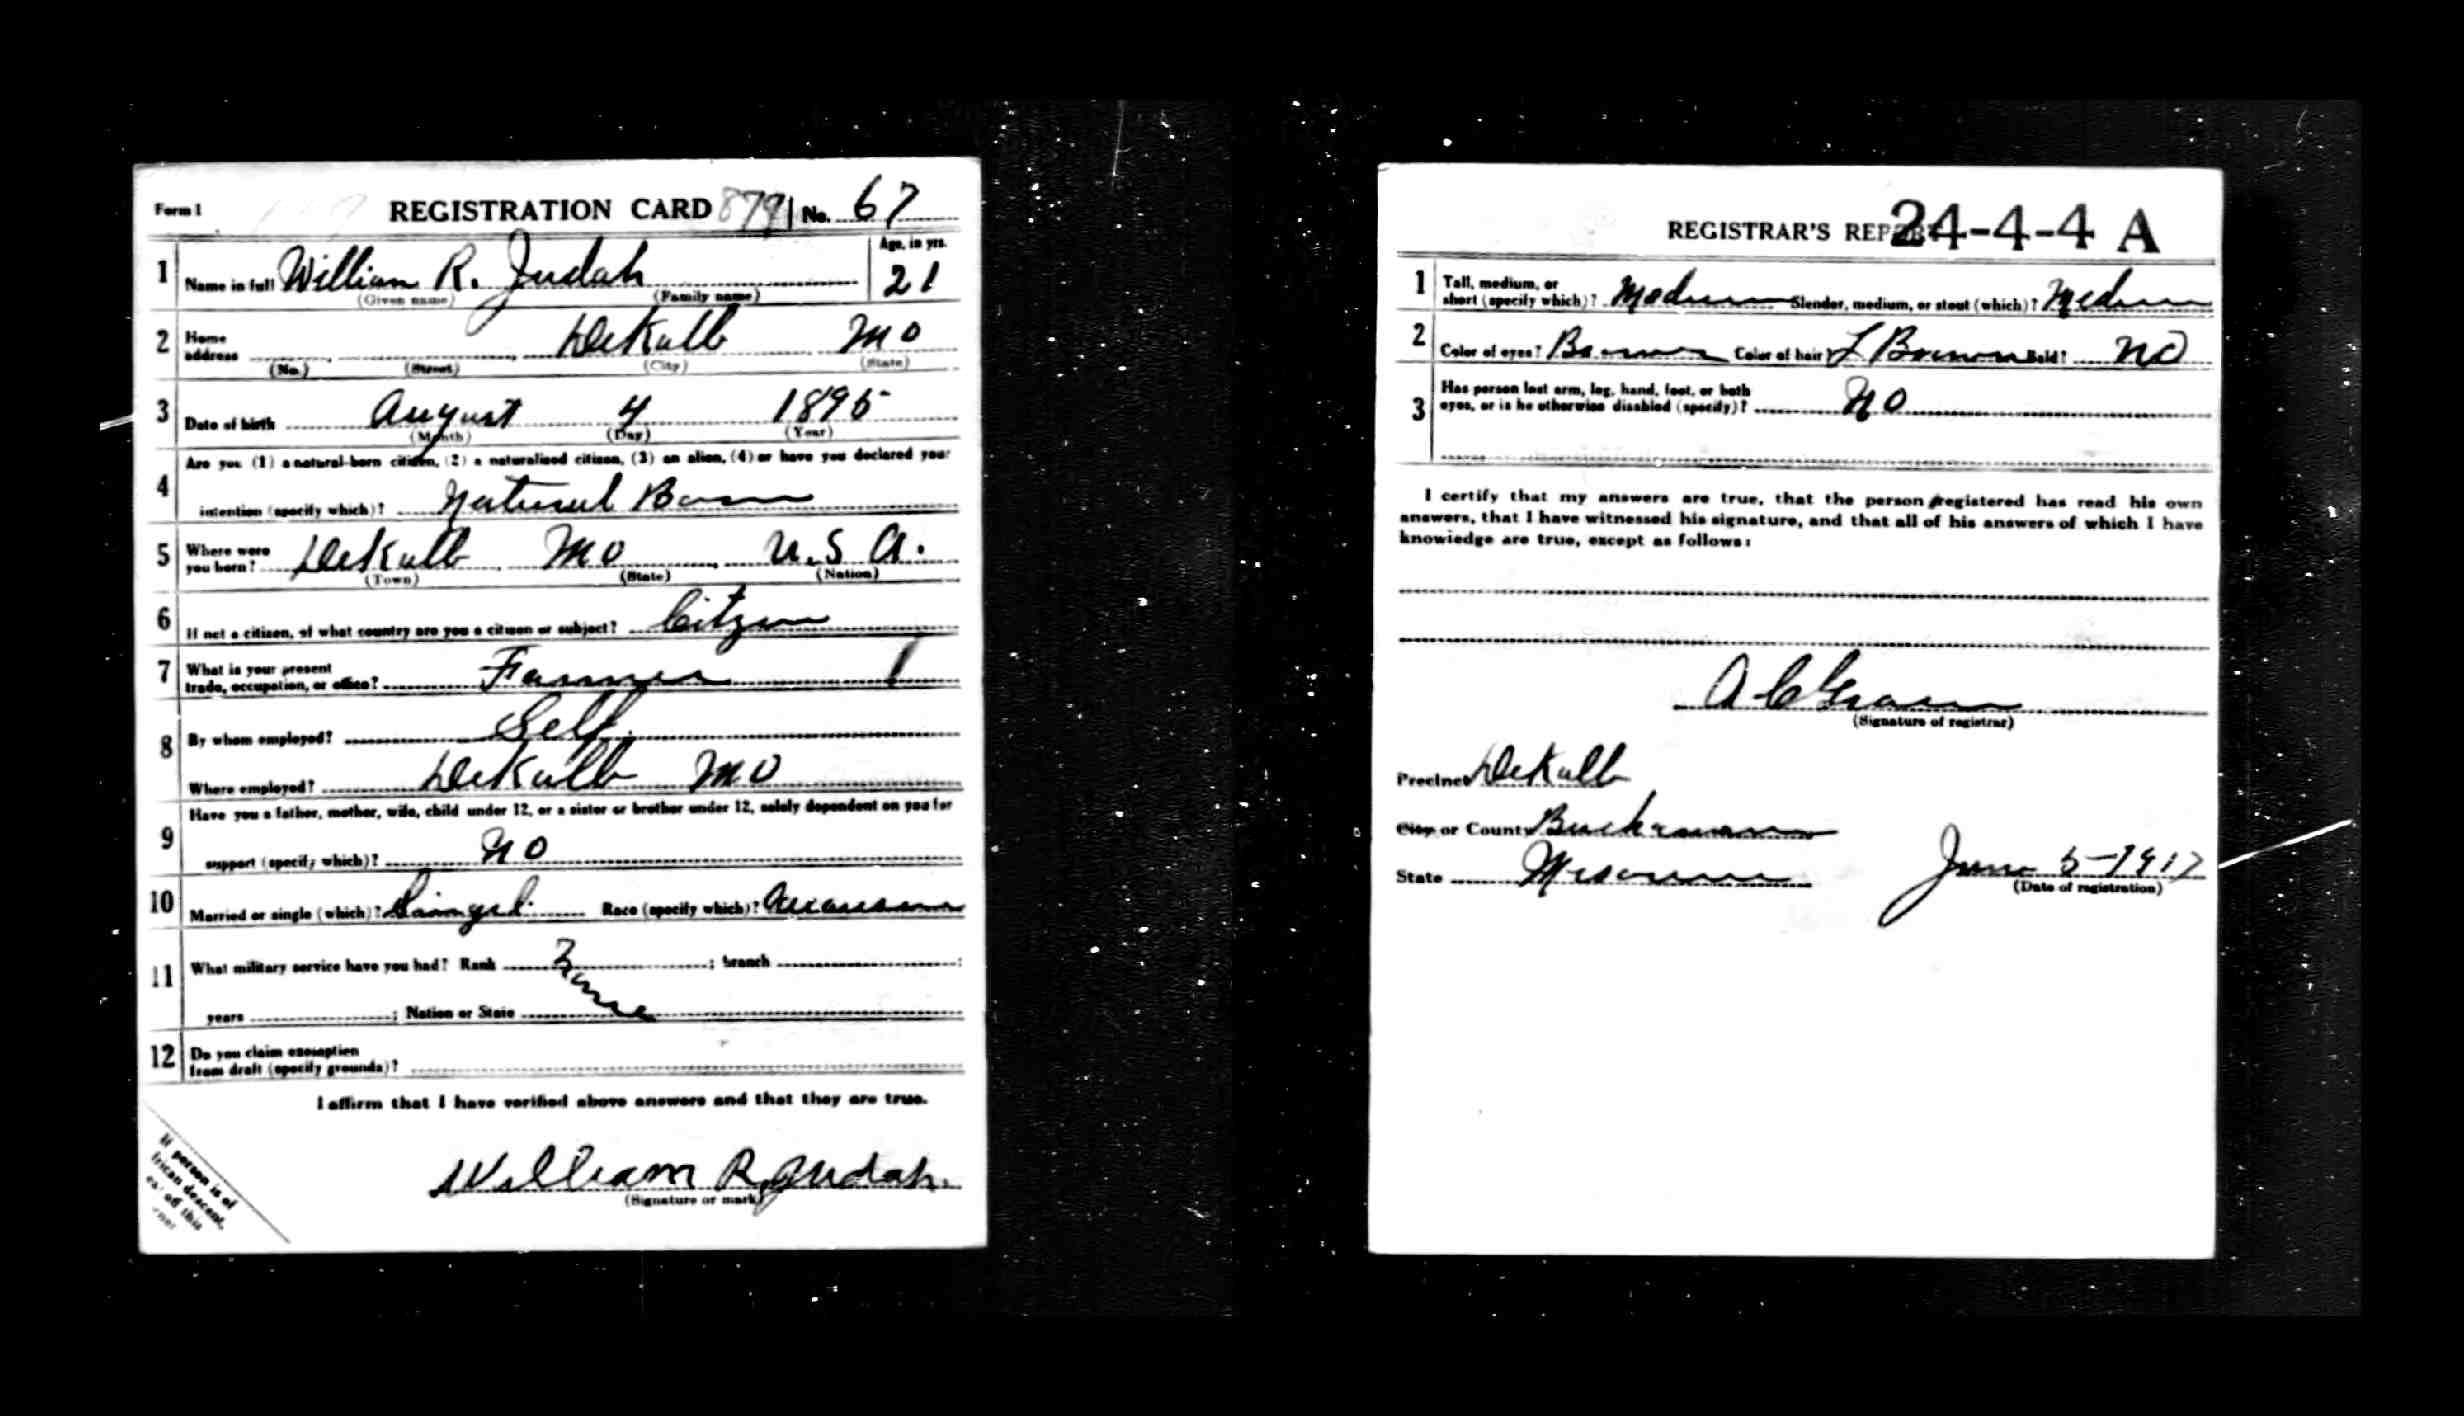 Form 1 REGISTRATION CARD 879 No. 67
1 Name in full William R. Judah Age, in yrs. 21
(Given name) (Family name)
2 Home address DeKalb Mo
(No.) (Street) (City) (State)
3 Date of birth August 4 1895
(Month) (Day) (Year)
4 Are you (1) a natural-born citizen, (2) a naturalized citizen, (3) an alien, (4) or have you declared your
intention (specify which)? Natural Born
5 Where were you born? DeKalb Mo U.S.A.
(Town) (State) (Nation)
6 If not a citizen, of what country are you a citizen or subject? Citzen
7 What is your present
trade, occupation, or office? Farmer
8 By whom employed? Self
Where employed? DeKalb Mo
9 Have you a father, mother, wife, child under 12, or a sister or brother under 12, solely dependent on you for
support (specify which)? No
10 Married or single (which)? Race (specify which)?
11 What military service have you had? Rank None ; branch ;
years ; Nation or State
12 Do you claim exemption
from draft (specify grounds)?
I affirm that I have verified above answers and that they are true.
William R. Judah.
(Signature or mark)
If person is of
frican descent,
off this
REGISTRAR'S REPORT
24-4-4 A
1 Tall, medium, or
short (specify which)? Medium Slender, medium, or stout (which)? Medium
2 Color of eyes? Brown Color of hair? L Brown Bald? No
3 Has person lost arm, leg, hand, foot, or both
eyes, or is he otherwise disabled (specify)? No
I certify that my answers are true, that the person registered has read his own
answers, that I have witnessed his signature, and that all of his answers of which I have
knowledge are true, except as follows:
A C
(Signature of registrar)
Precinct DeKalb
City or County Buchanan
State June 5-1917
(Date of registration)